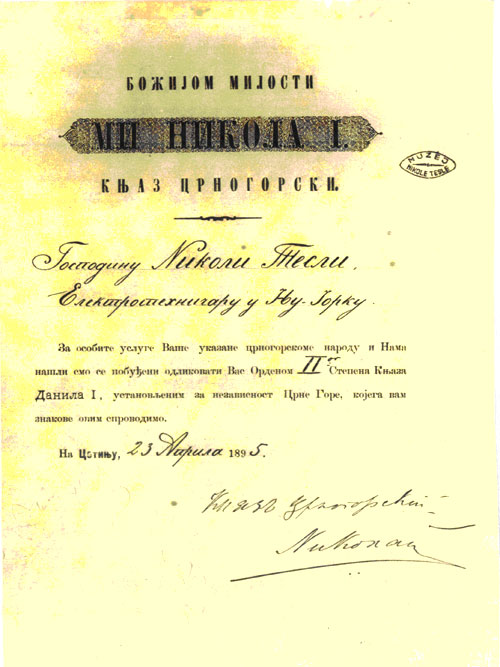 БОЖИЈОМ МИЛОСТИ
МИ НИКОЛА I.
КЊАЗ ЦРНОГОРСКИ.
MUZEJ
NIKOLE TESLE
Господину Николи Тесли,
Електротехничару у Њу-Јорку.
За особите услуге Ваше указане црногорскоме народу и Нама
нашли смо се побуђени одликовати Вас Орденом II ог Степена Књаза
Данила I, установљеним за независност Црне Горе, којега вам
знакове овим спроводимо.
На Цетињу, 23 Априла 1895.
Књазъ Црногорский
Николай